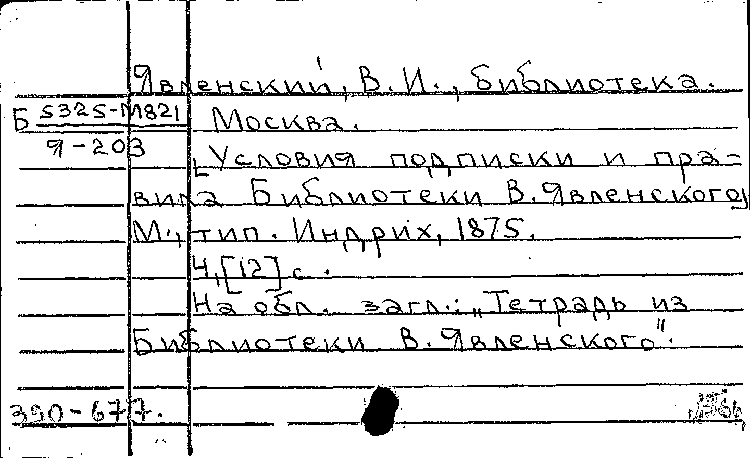 Явленский, В. И., библиотека.
Б S325-М821 Москва.
Я-203
[Условия подписки и пра-
вила Библиотеки В. Явленского]
М., тип. Индрих, 1875.
4,[12] с.
На обл. загл.: „Тетрадь из
Библиотеки В. Явленского".
390-677.